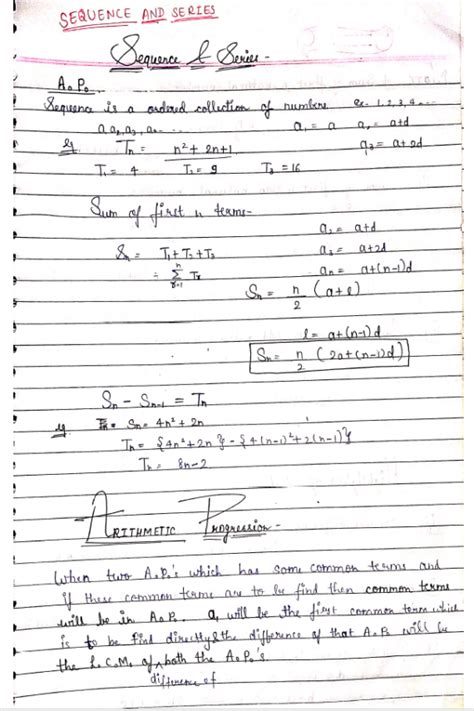 SEQUENCE AND SERIES
Sequence & Series -
A.P.
Sequence is a ordered collection of numbers. ex- 1, 2, 3, 4...
a₁ = a a₂ = a+d
eg Tₙ = n² + 2n+1 a₃ = a+2d
T₁ = 4 T₂ = 9 T₃ = 16
Sum of first n terms-
a₂ = a+d
Sₙ = T₁ + T₂ + T₃ a₃ = a+2d
= n∑r=1 Tr aₙ = a+(n-1)d
Sₙ = n/2 (a+l)
l = a+(n-1)d
Sₙ = n/2 (2a+(n-1)d)
Sₙ - Sₙ₋₁ = Tₙ
eg Sₙ = 4n² + 2n
Tₙ = {4n² + 2n} - {4(n-1)² + 2(n-1)}
Tₙ = 8n-2
ARITHMETIC Progression -
When two A.P.'s which has some common terms and
if these common terms are to be find then common terms
will be in A.P. a₁ will be the first common term which
is to be find directly & the difference of that A.P. will be
the L.C.M. of ^ both the A.P.'s.
difference of